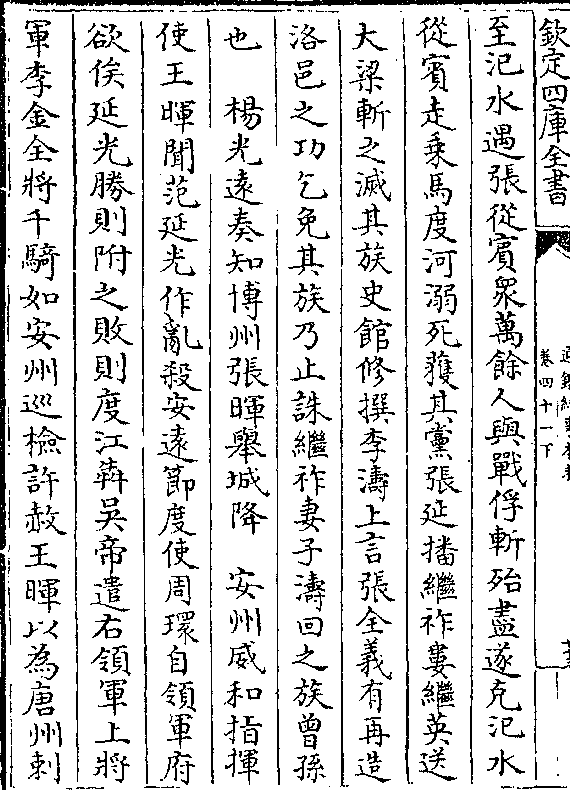 欽定四庫全書
卷四十一下
至汜水遇張從賓眾萬餘人與戰俘斬殆盡遂克汜水
從賓走乗馬度河溺死獲其黨張延播繼祚婁繼英送
大梁斬之滅其族史館修撰李濤上言張全義有再造
洛邑之功乞免其族乃止誅繼祚妻子濤回之族曾孫
也　楊光遠奏知博州張暉舉城降　安州威和指揮
使王暉聞范延光作亂殺安遠節度使周瓌自領軍府
欲俟延光勝則附之敗則度江犇吳帝遣右領軍上將
軍李金全將千騎如安州巡檢許赦王暉以為唐州刺